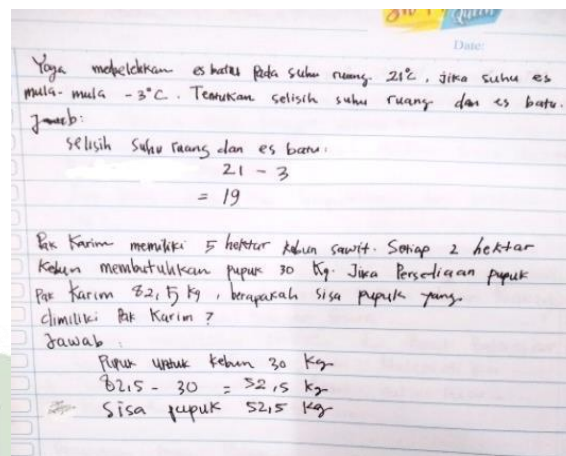 Date:
Yoga es batu pada suhu ruang 21°C, jika suhu es
mula-mula -3°C. Tentukan selisih suhu ruang dan es batu.
Jawab:
selisih suhu ruang dan es batu:
21 - 3
= 19
Pak Karim memiliki 5 hektar kebun sawit. Setiap 2 hektar
kebun membutuhkan pupuk 30 Kg. Jika Persediaan pupuk
Pak Karim 82,5 kg, berapakah sisa pupuk yang
dimiliki Pak Karim ?
Jawab :
Pupuk untuk kebun 30 kg
82,5 - 30 = 52,5 kg
Sisa pupuk 52,5 kg